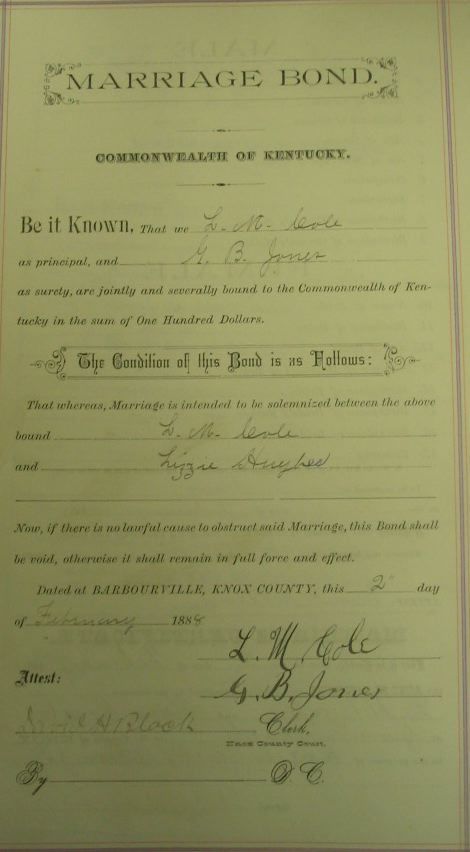 MARRIAGE BOND.
COMMONWEALTH OF KENTUCKY.
Be it Known, That we L. M. Cole
as principal, and G. B. Jones
as surety, are jointly and severally bound to the Commonwealth of Ken-
tucky in the sum of One Hundred Dollars.
The Condition of this Bond is as Follows:
That whereas, Marriage is intended to be solemnized between the above
bound L. M. Cole
and Lizzie Hughes
Now, if there is no lawful cause to obstruct said Marriage, this Bond shall
be void, otherwise it shall remain in full force and effect.
Dated at BARBOURVILLE, KNOX COUNTY, this 2" day
of February 1888
L. M. Cole
Attest: G. B. Jones
Black Clerk,
Knox County Court.
By D. C.